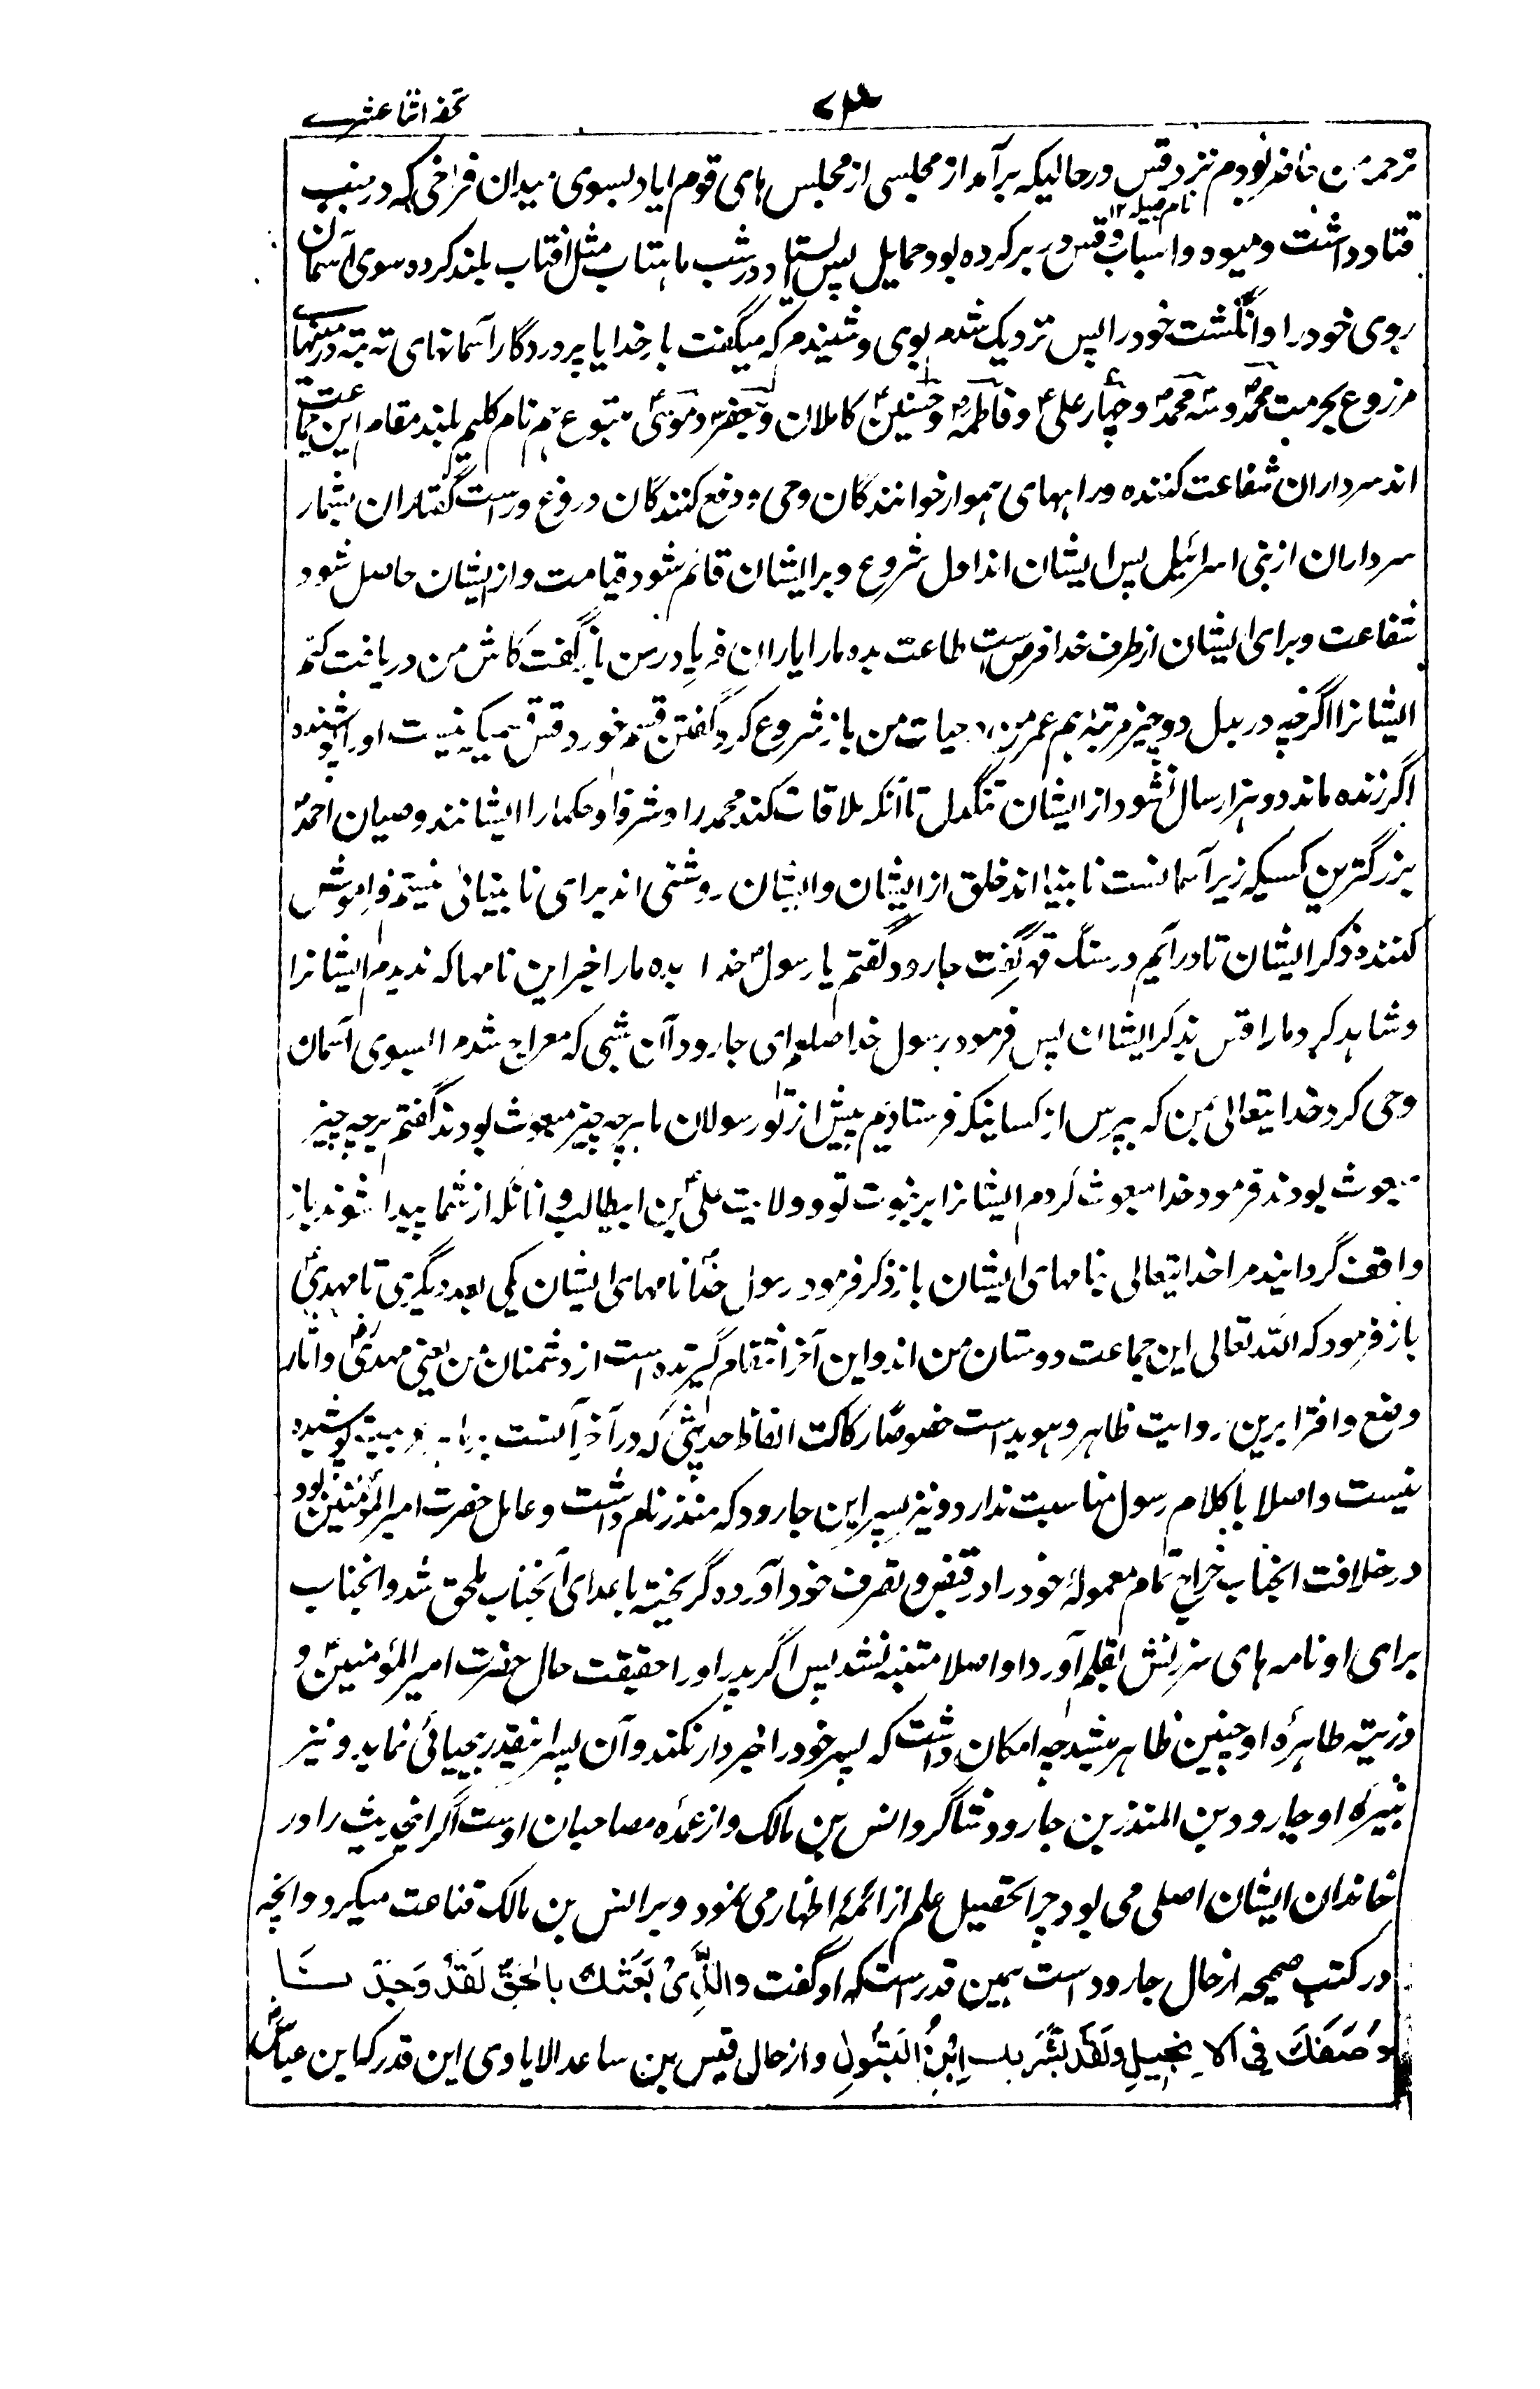 تحفه اثنا عشرے
ترجمه من حاضر بودم نزد قس در حالیکه برآمد از مجلسی از مجلس های قوم ایاد بسوی میدان فراخی که درخت
نام قبیله ۱۲
قتاد داشت و میوه و اسباب و قس در بر کرده بود حمایل پس استاد در شب ماهتاب مثل آفتاب بلند کرده سوی آسمان
روی خود را و انگشت خود را پس نزدیک شدم بوی و شنیدم که میگفت بار خدایا پروردگار آسمانهای ته بته و زمینهای
مزروع بحرمت محمد و سه محمد و چهار علی و فاطمه و حسنین کاملان و جعفر و موسی متبوع هم نام کلیم بلند مقام این جماعت
اند سرداران شفاعت کننده و راههای هموار خوانندگان وحی و دفع کنندگان دروغ و راست گفتاران بشمار
سرداران از بنی اسرائیل پس ایشان اند اول شروع و بر ایشان قائم شود قیامت و از ایشان حاصل شود
شفاعت و برای ایشان از طرف خدا فرض ست طاعت بده ما را یاران فریادرس باز گفت کاش من دریافت کنم
ایشانرا اگرچه در بدل دو چیز مرتبه هم عمر من و حیات من باز شروع کرد گفتن قسم خورد قس قسمیکه نیست او را پوشنده
اگر زنده ماند دو هزار سال نشود از ایشان تنگدل تا آنکه ملاقات کند محمد را و شرفا و حکما را ایشانند وصیان احمد
بزرگترین کسیکه زیر آسمانست نابینا اند خلق از ایشان و ایشان روشنی اند برای نابینائی نیستم فراموش
کننده ذکر ایشان تا در آیم در سنگ قبر گفت جارود گفتم یا رسول خدا بده ما را خبر این نامها که ندیدم ایشانرا
و شاهد کرد ما را قس بذکر ایشان پس فرمود رسول خدا صلعم ای جارود آن شبی که معراج شدم بسوی آسمان
وحی کرد خدایتعالی بمن که بپرس از کسانیکه فرستادیم پیش از تو رسولان ما بر چه چیز مبعوث بودند گفتم بر چه چیز
مبعوث بودند فرمود خدا مبعوث کردم ایشانرا بر نبوت تو و ولایت علی بن ابیطالب و انانکه از شما پیدا شوند باز
واقف گردانید مرا خدایتعالی بنامهای ایشان باز ذکر فرمود رسول خدا نامهای ایشان یکی بعد دیگری تا مهدی
باز فرمود که الله تعالی این جماعت دوستان من اند و این آخر انتقام گیرنده است از دشمنان من یعنی مهدی و اثار
وضع و افترا برین روایت ظاهر و هویداست خصوصا رکاکت الفاظ حدیثی که در آخر آنست بر عربیت پوشیده
نیست و اصلا با کلام رسول مناسبت ندارد و نیز پسر این جارود که منذر نام داشت و عامل حضرت امیر المؤمنین بود
در خلافت انجناب خراج تمام معموله خود را در قبض و تصرف خود آورده گریخته با عدای آنجناب ملحق شد و انجناب
برای او نامه های سرزنش بقلم آورد او اصلا متنبه نشد پس اگر پدر او را حقیقت حال حضرت امیر المؤمنین و
ذریته طاهره او چنین ظاهر میشد چه امکان داشت که پسر خود را خبردار نکند و آن پسر اینقدر بیحیائی نماید و نیز
نبیره او جارود بن المنذر بن جارود شاگرد انس بن مالک و از عمده مصاحبان اوست اگر اینحدیث را در
خاندان ایشان اصلی می بود چرا تحصیل علم از ائمه اطهار می نمود و بر انس بن مالک قناعت میکرد و انچه
در کتب صحیحه از حال جارود است همین قدر است که او گفت والَّذِیْ بَعَثَكَ بِالْحَقِّ لَقَدْ وَجَدْنَا
وَصَفَكَ فِی الْاِنْجِیلِ وَلَقَدْ بَشَّرَ بِكَ اِبْنُ الْبَتُولِ و از حال قیس بن ساعد الایادی این قدر که ابن عباس